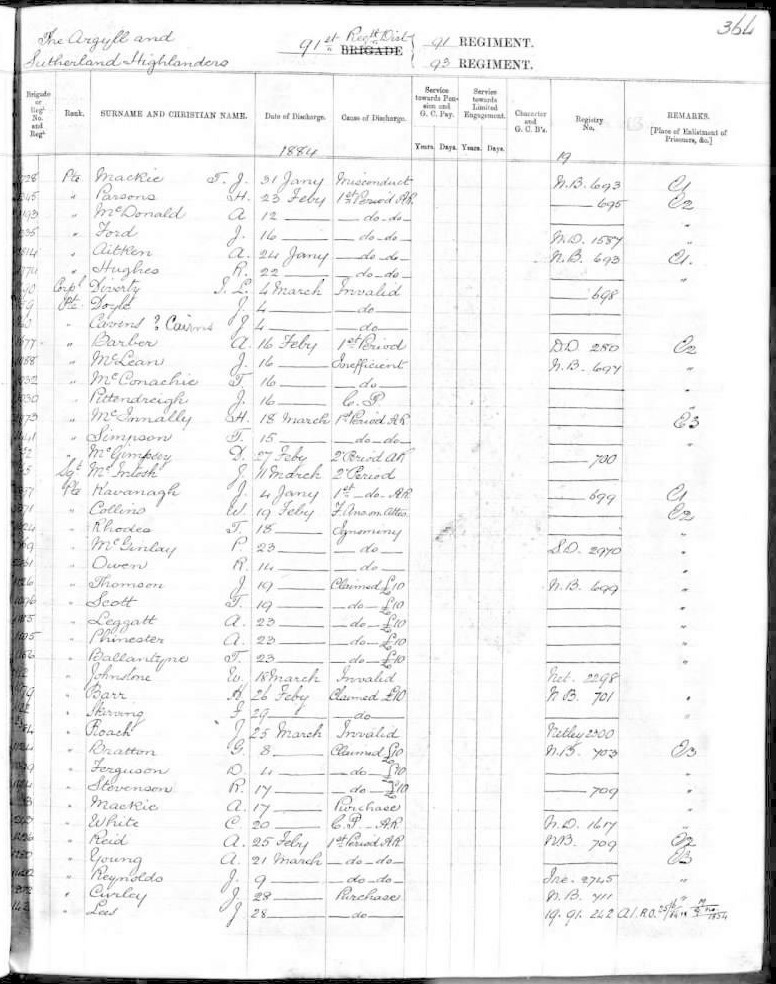 364
The Argyll and Sutherland Highlanders 91st Regtl Dist BRIGADE { 91 REGIMENT. 93 REGIMENT.
Brigade or Regt No. and Regt Rank. SURNAME AND CHRISTIAN NAME. Date of Discharge. Cause of Discharge. Service towards Pension and G. C. Pay. Service towards Limited Engagement. Character and G. C. B's. Registry No. REMARKS. [Place of Enlistment of Prisoners, &c.]
Years. Days. Years. Days.
1884 19
Pte Mackie T. J. 31 Jany Misconduct N.B. 693 C1
" Parsons H. 23 Feby 1st Period A.R. —— 695 C2
" McDonald A 12 —— —do—do— —— "
" Ford J. 16 —— —do—do— N.D. 1587
" Aitken A. 24 Jany —do—do— N.B. 693 C1.
" Hughes R. 22 —— —do—do— —— "
Corpl Diverty J. L. 4 March Invalid —— 698
Pte Doyle J. 4 —— —do— ——
" Cavens ? Cairns J 4 —— —do— ——
" Barber A. 16 Feby 1st Period D.D. 280 C2
" McLean J. 16 —— Inefficient N.B. 697 "
" McConachie T. 16 —— —do— —— "
" Pittendreigh J. 16 —— C. P. —— "
" McInnally H. 18 March 1st Period A.R. —— C3
" Simpson T. 15 —— —do—do— —— "
" McGimpsey D. 27 Feby 2d Period A.R —— 700
Sgt McIntosh J 11 March 2d Period ——
Pte Kavanagh J. 4 Jany 1st —do— A.R. —— 699 C1
" Collins W. 19 Feby F. Ans. on Attes. —— C2
" Rhodes T. 18 —— Ignominy —— "
" McGinlay P. 23 —— —do— S.D. 2970 "
" Owen R. 14 —— —do— —— "
" Thomson J 19 —— Claimed £10 N.B. 699 "
" Scott T. 19 —— —do— £10 —— "
" Leggatt A. 23 —— —do— £10 —— "
" Phinester A. 23 —— —do— £10 —— "
" Ballantyne T. 23 —— —do— £10 —— "
" Johnstone W. 18 March Invalid Net. 2298
" Barr 26 Feby Claimed £10 N.B. 701 "
" Skerving 29 —— —do— —— "
" Roach J 25 March Invalid Netley 2300
" Bratton G. 8 —— Claimed £10 N.B. 703 C3
" Ferguson D. 4 —— —do— £10 —— "
" Stevenson R. 17 —— —do— £10 —— 709 "
" Mackie A. 17 —— Purchase —— "
" White C. 20 —— C. P. A.R. N.D. 1617 "
" Reid A. 25 Feby 1st Period A.R. N.B. 709 C2
" Young A. 21 March —do—do— —— C3
" Reynolds J. 9 —— —do—do— Ire. 2745 "
" Curley J. 28 —— Purchase N.B. 711 "
" Lees J 28 —— —do— 19. 91. 242